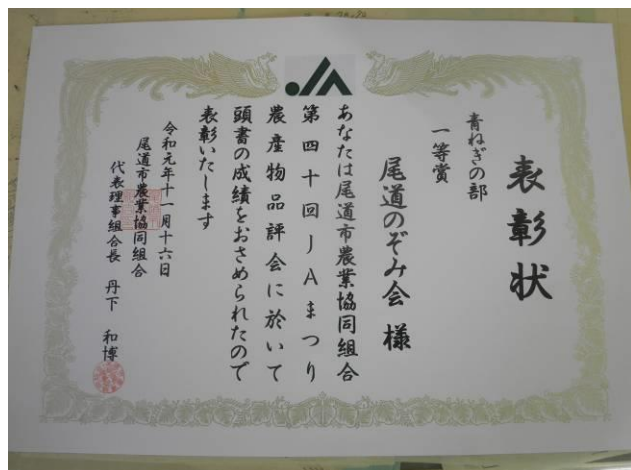 表彰状
青ねぎの部
一等賞
尾道のぞみ会 様
あなたは尾道市農業協同組合
第四十回JAまつり
農産物品評会に於いて
頭書の成績をおさめられたので
表彰いたします
令和元年十一月十六日
尾道市農業協同組合
代表理事組合長 丹下 和博